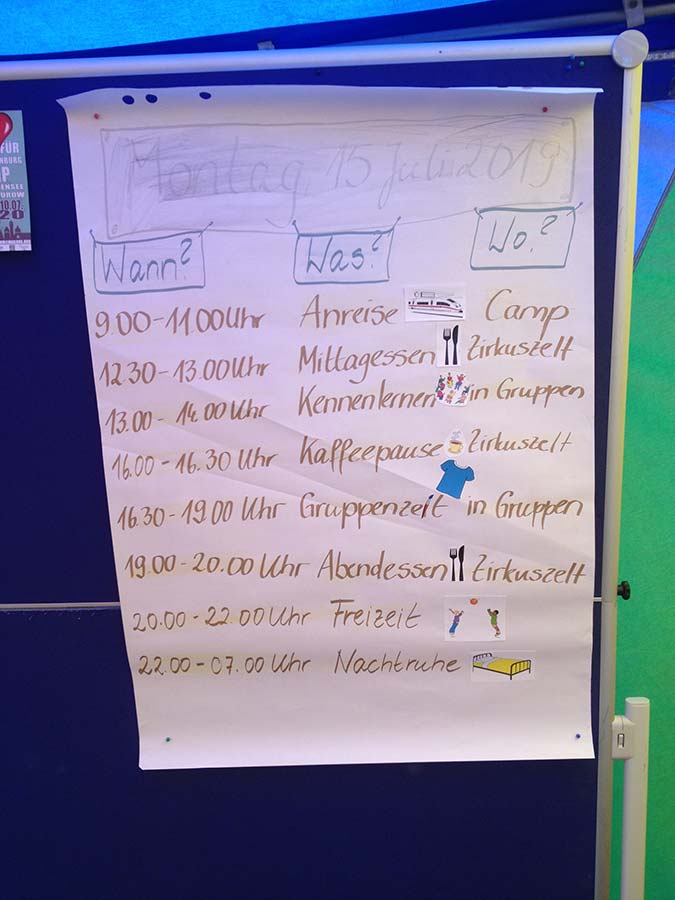 FÜR
10.07.
20
Montag, 15 Juli 2019
Wann? Was? Wo?
9.00-11.00 Uhr Anreise Camp
12.30-13.00 Uhr Mittagessen Zirkuszelt
13.00-14.00 Uhr Kennenlernen in Gruppen
16.00-16.30 Uhr Kaffeepause Zirkuszelt
16.30-19.00 Uhr Gruppenzeit in Gruppen
19.00-20.00 Uhr Abendessen Zirkuszelt
20.00-22.00 Uhr Freizeit
22.00-07.00 Uhr Nachtruhe